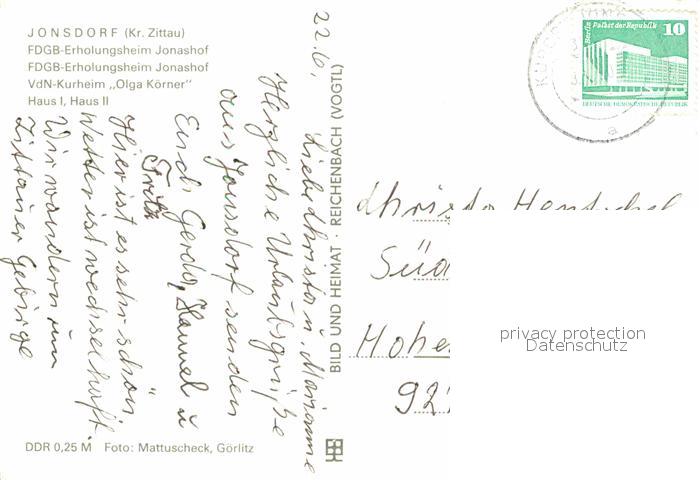 JONSDORF (Kr. Zittau)
FDGB-Erholungsheim Jonashof
FDGB-Erholungsheim Jonashof
VdN-Kurheim „Olga Körner"
Haus I, Haus II
22.6.
Liebe Christa u. Marianne
Herzliche Urlaubsgrüße
aus Jonsdorf senden
Euch Gerda, Hannel u
Fritz
Hier ist es sehr schön,
Wetter ist wechselhaft.
Wir wandern im
Zittauer Gebirge
DDR 0,25 M Foto: Mattuscheck, Görlitz
BILD UND HEIMAT · REICHENBACH (VOGTL)
Berlin Palast der Republik
10
DEUTSCHE DEMOKRATISCHE REPUBLIK
a
Christa
Süd
Hohe
92
privacy protection
Datenschutz